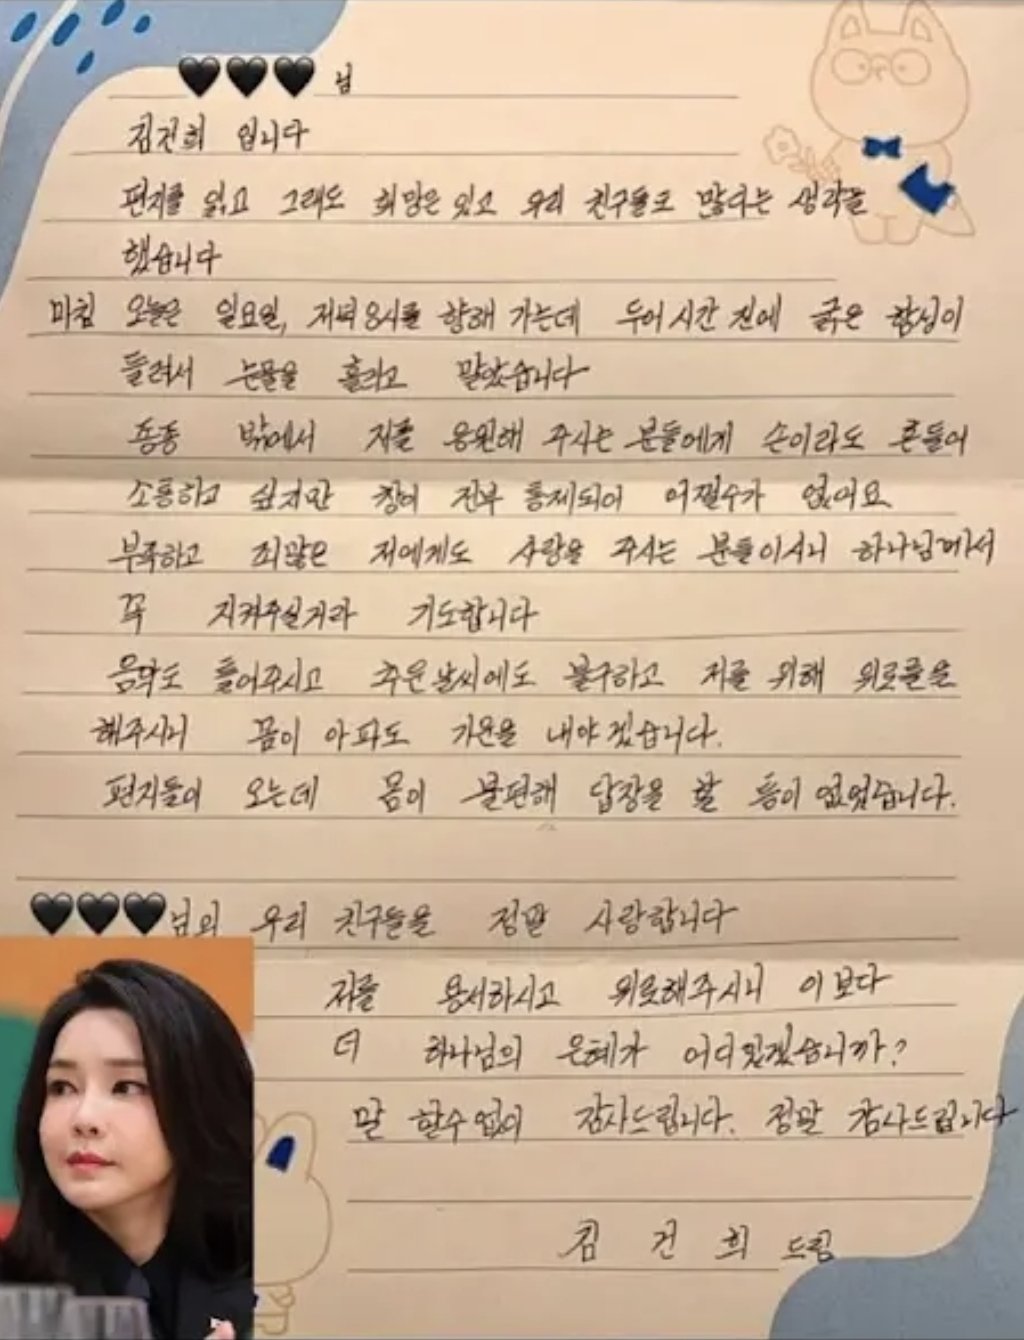 님
김건희 입니다
편지를 읽고 그래도 희망은 있고 우리 친구들도 많다는 생각을
했습니다
마침 오늘은 일요일, 저녁 8시를 향해 가는데 두어시간 전에 굵은 함성이
들려서 눈물을 흘리고 말았습니다
종종 밖에서 저를 응원해 주시는 분들에게 손이라도 흔들어
소통하고 싶지만 창이 전부 통제되어 어쩔수가 없어요
부족하고 죄많은 저에게도 사랑을 주시는 분들이시니 하나님께서
꼭 지켜주실거라 기도합니다
음악도 틀어주시고 추운날씨에도 불구하고 저를 위해 위로를
해주시니 몸이 아파도 기운을 내야겠습니다.
편지들이 오는데 몸이 불편해 답장을 할 틈이 없었습니다.
님의 우리 친구들을 정말 사랑합니다
저를 용서하시고 위로해주시니 이보다
더 하나님의 은혜가 어디있겠습니까?
말 할수없이 감사드립니다. 정말 감사드립니다
김 건 희 드림